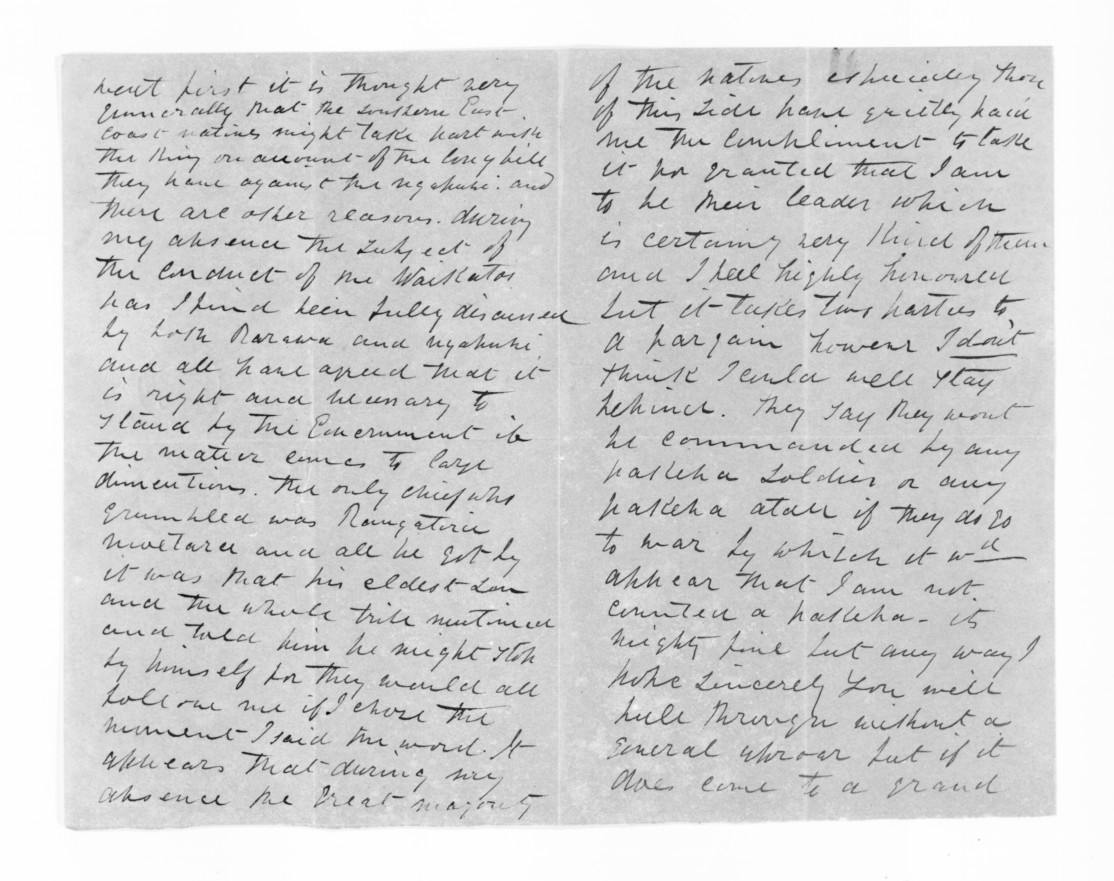 went first it is thought very
generally that the southern East
coast natives might take part with
the King on account of the long bill
they have against the ngapuhi. and
there are other reasons. during
my absence the subject of
the conduct of the Waikatos
has I find been fully discussed
by both Rarawa and ngapuhi
and all have agreed that it
is right and necessary to
stand by the Government if
the matter comes to large
dimentions. the only chief who
grumbled was Rangatira
moetara and all he got by
it was that his eldest son
and the whole tribe mutinied
and told him he might stop
by himself for they would all
follow me if I chose the
moment I said the word. It
appears that during my
absence the great majority
of the natives especially those
of this side have quietly paid
me the compliment to take
it for granted that I am
to be their leader which
is certainly very kind of them
and I feel highly honoured
but it takes two parties to
a bargain however I dont
think I could well stay
behind. They say they wont
be commanded by any
pakeha soldier or any
pakeha atall if they do go
to war by which it wd
appear that I am not
counted a pakeha - its
mighty fine but any way I
hope sincerely you will
pull through without a
general uproar but if it
does come to a grand